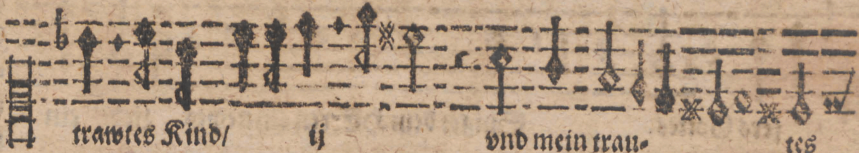 trawtes Kind/ ij vnd mein trau⸗ tes